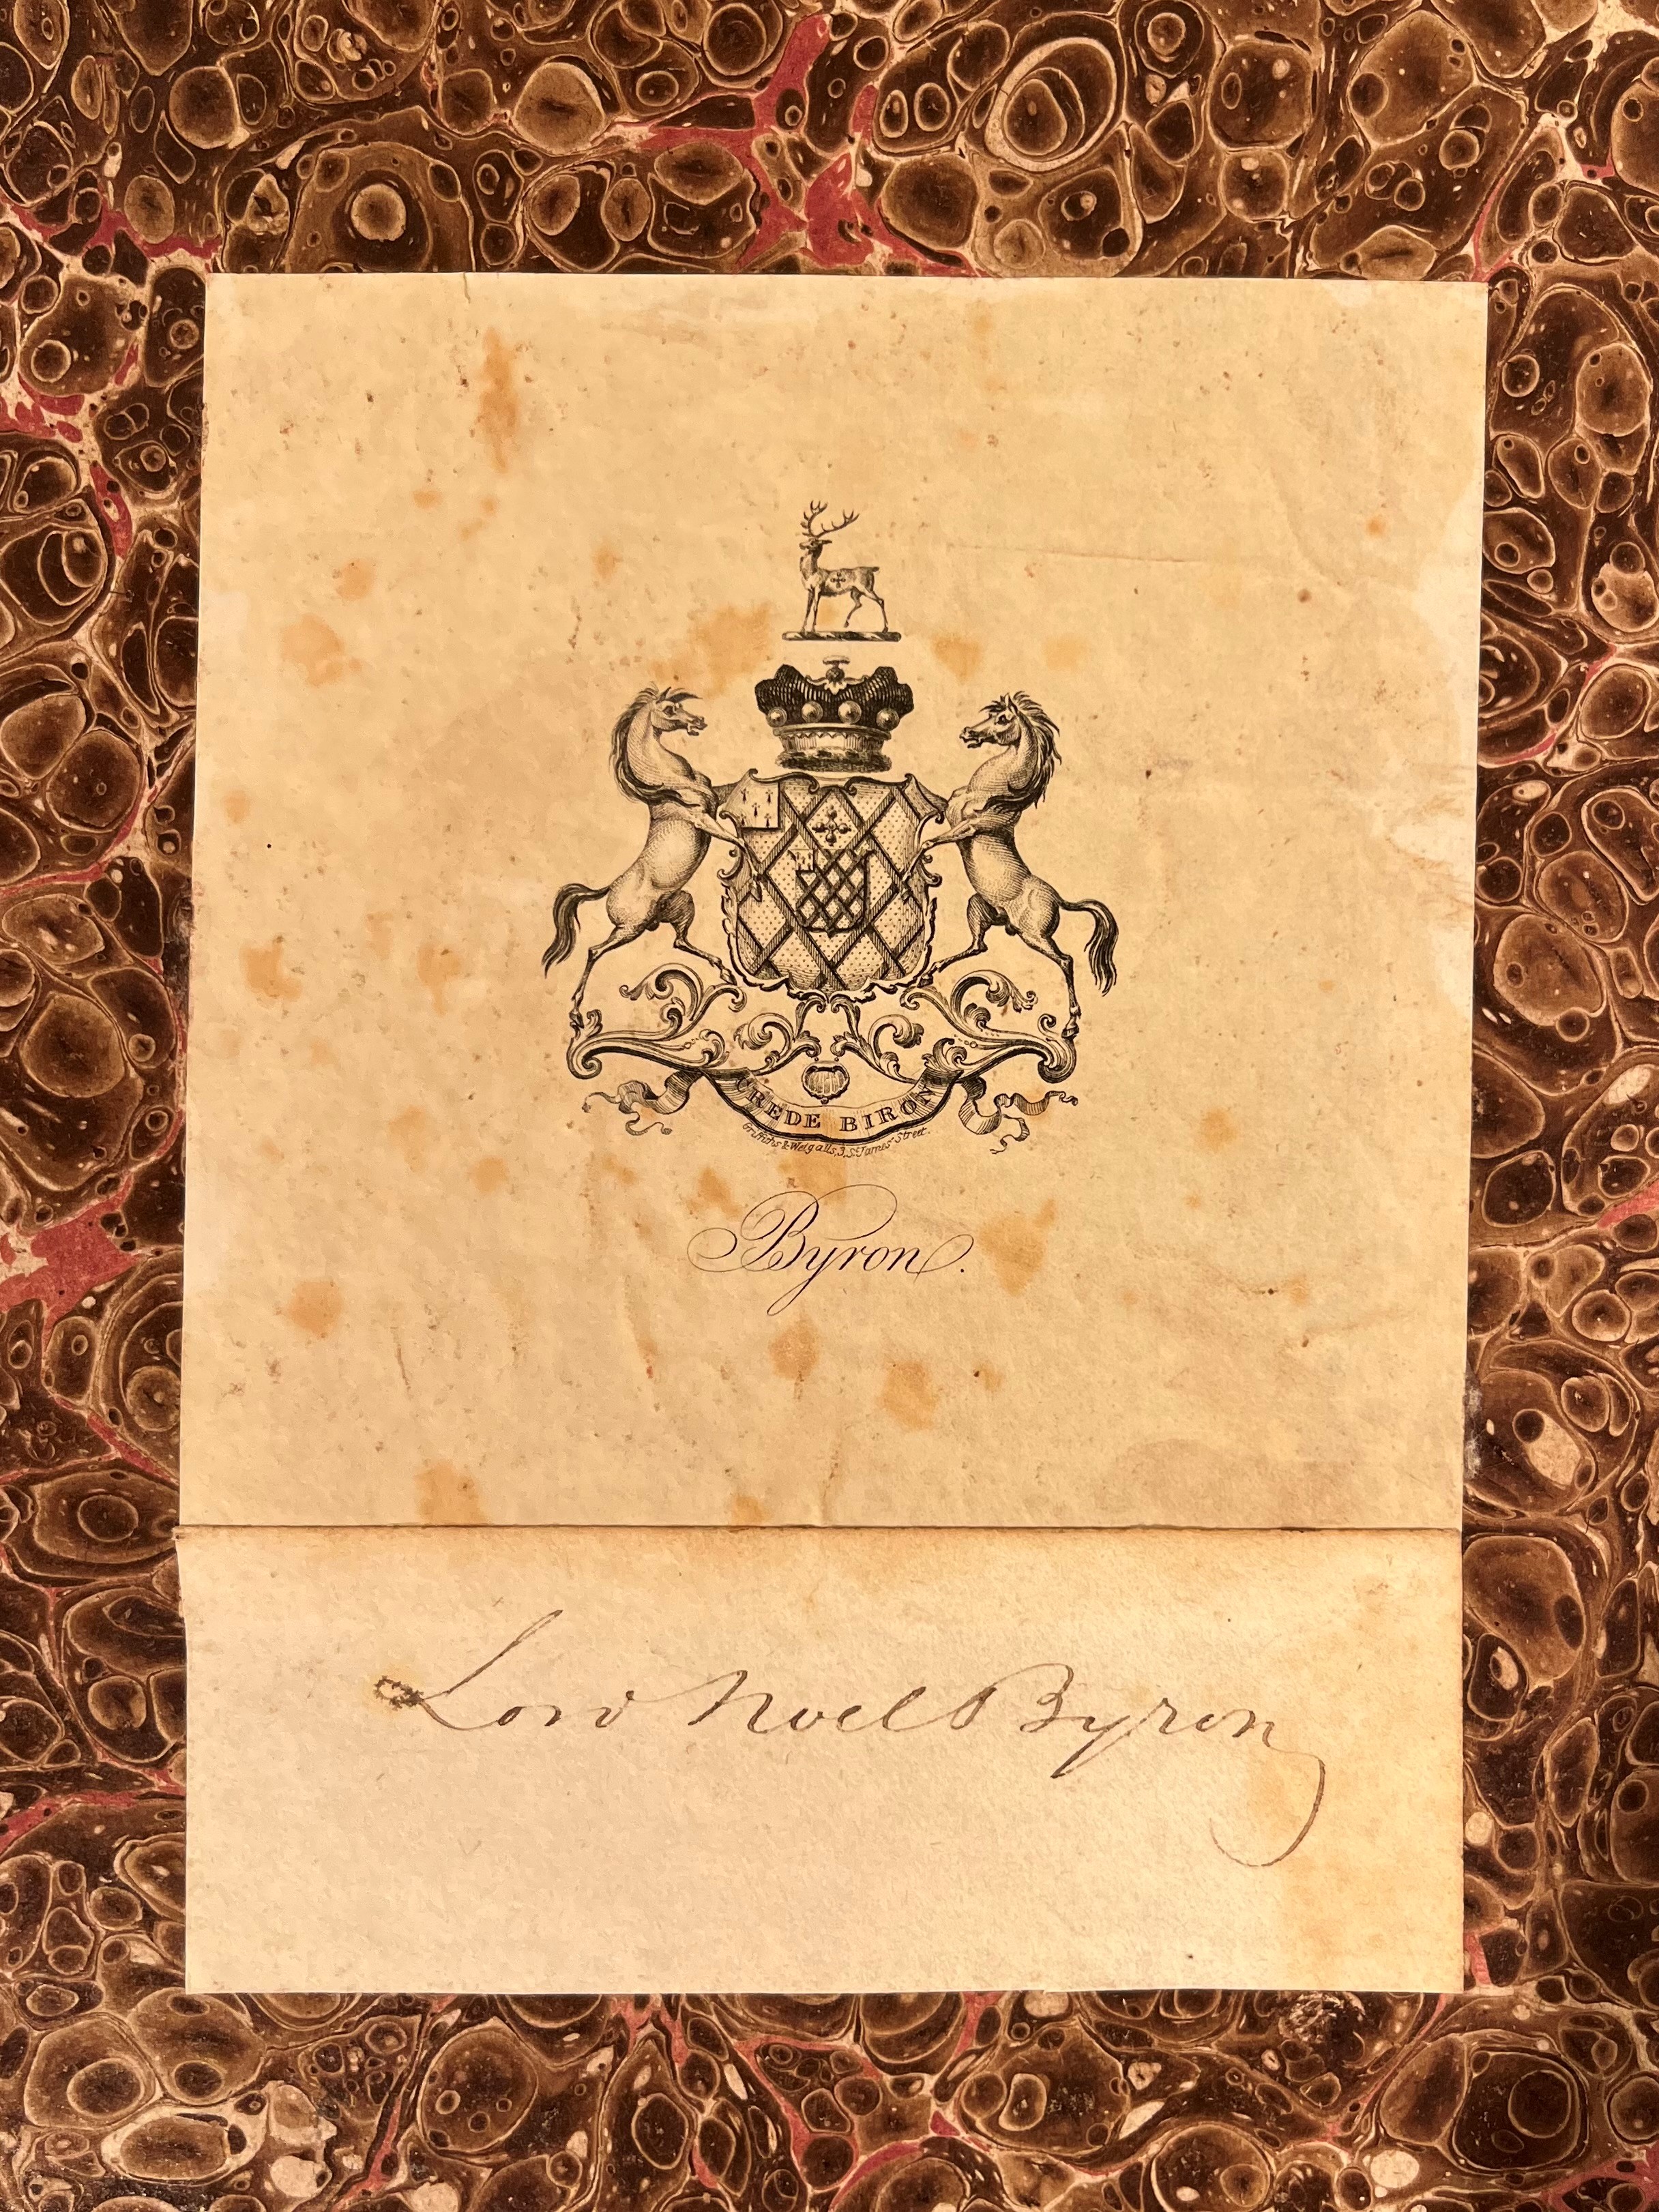 CREDE BIRON
Griffiths & Weigalls, 3, St. James' Street.
Byron.
Lord Noel Byron